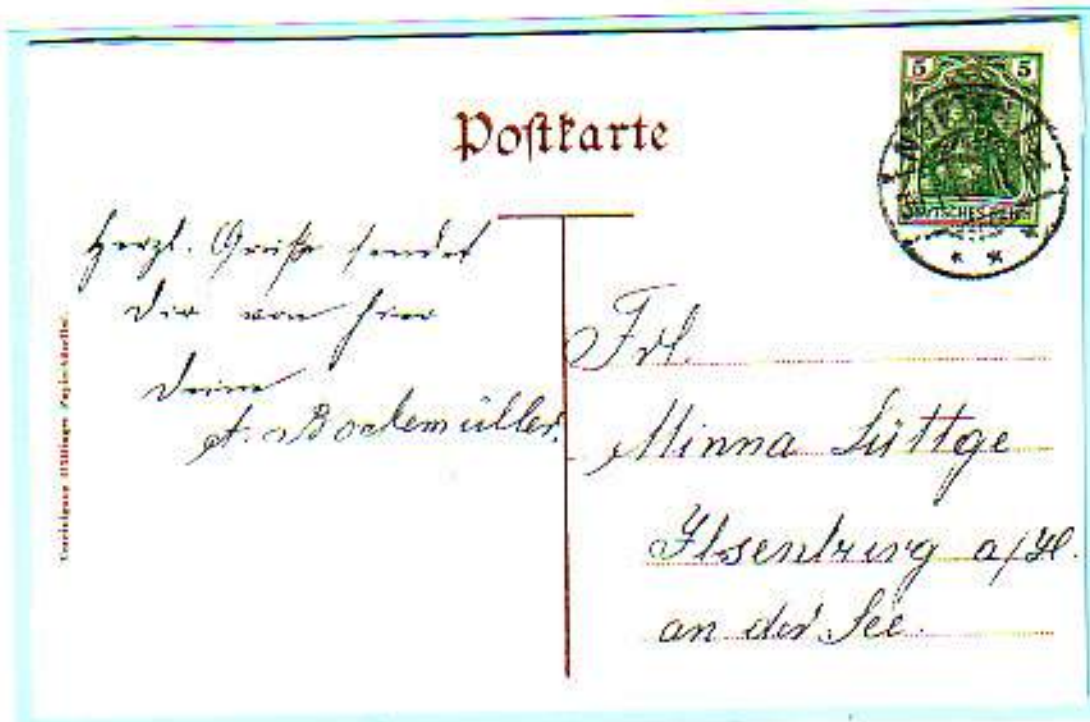 Postkarte
5 5
DEUTSCHES REICH
Herzl. Grüße sendet
Dir von hier
Deine
A. Bockemüller.
Frl.
Minna Lüttge
Ilsenburg a/H.
an der See.